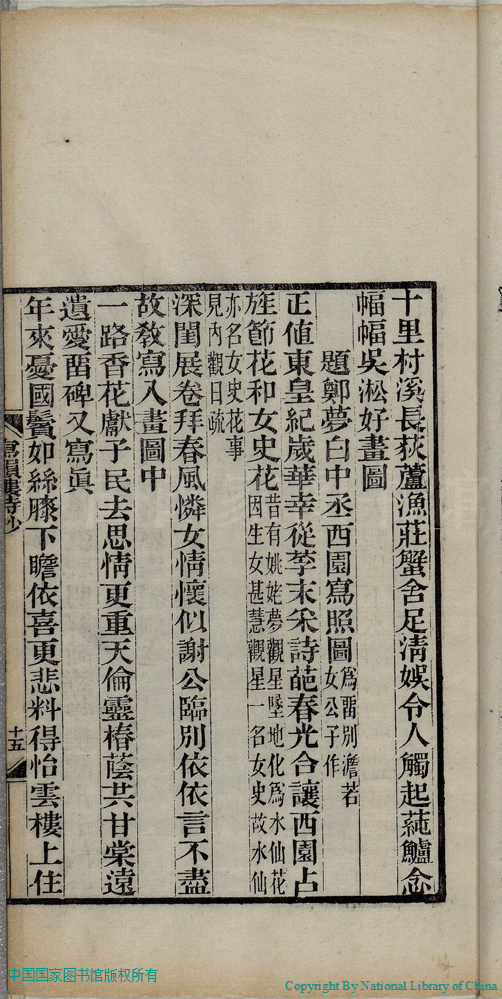 十里村溪長荻蘆漁莊蟹舍足清娛令人觸起蒓鱸念
幅幅吳淞好畫圖
題鄭夢白中丞西園寫照圖爲畱別澹若
女公子作
正值東皇紀歲華幸從莩末采詩葩春光合讓西園占
旌節花和女史花昔有姚姥夢觀星墜地化爲水仙花
因生女甚慧觀星一名女史故水仙
亦名女史花事
見內觀日疏
深閨展卷拜春風憐女情懷似謝公臨別依依言不盡
故敎寫入畫圖中
一路香花獻子民去思情更重天倫靈椿蔭共甘棠遠
遺愛畱碑又寫眞
年來憂國鬢如絲膝下瞻依喜更悲料得怡雲樓上住
寫韻樓詩鈔
十五
中国国家图书馆版权所有
Copyright By National Library of China